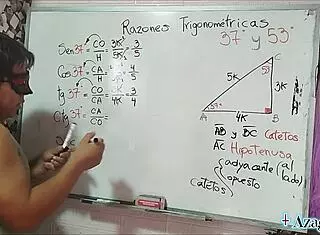 Razones Trigonométricas
37° y 53°
Sen 37° = CO/H = 3K/5K = 3/5
Cos 37° = CA/H = 4K/5K = 4/5
tg 37° = CO/CA = 3K/4K = 3/4
Ctg 37° = CA/CO =
C
53°
5K
3K
37°
A
4K
B
AB y BC Catetos
AC Hipotenusa
Catetos { adyacente (al lado)
opuesto
+Azag